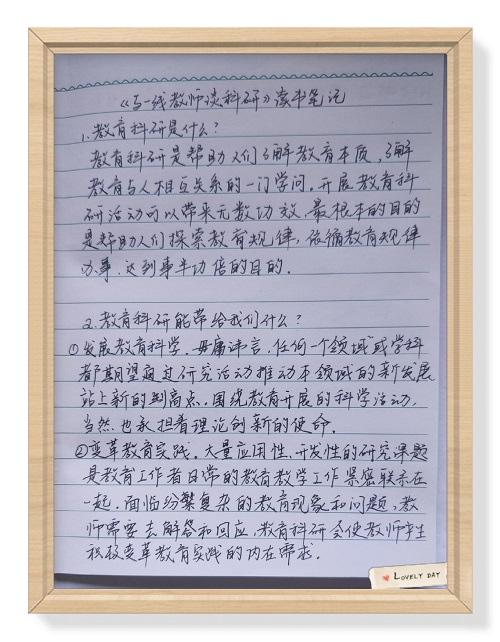 《与一线教师谈科研》读书笔记
1.教育科研是什么？
教育科研是帮助人们了解教育本质，了解
教育与人相互关系的一门学问。开展教育科
研活动可以带来无数功效，最根本的目的
是帮助人们探索教育规律，依循教育规律
办事，达到事半功倍的目的。
2.教育科研能带给我们什么？
①发展教育科学。毋庸讳言，任何一个领域或学科
都期望通过研究活动推动本领域的新发展
站上新的制高点。围绕教育开展的科学活动，
当然也承担着理论创新的使命。
②变革教育实践。大量应用性、开发性的研究课题
是教育工作者日常的教育教学工作紧密联系在
一起，面临纷繁复杂的教育现象和问题，教
师需要去解答和回应，教育科研会使教师产生
积极变革教育实践的内在需求。
LOVELY DAY